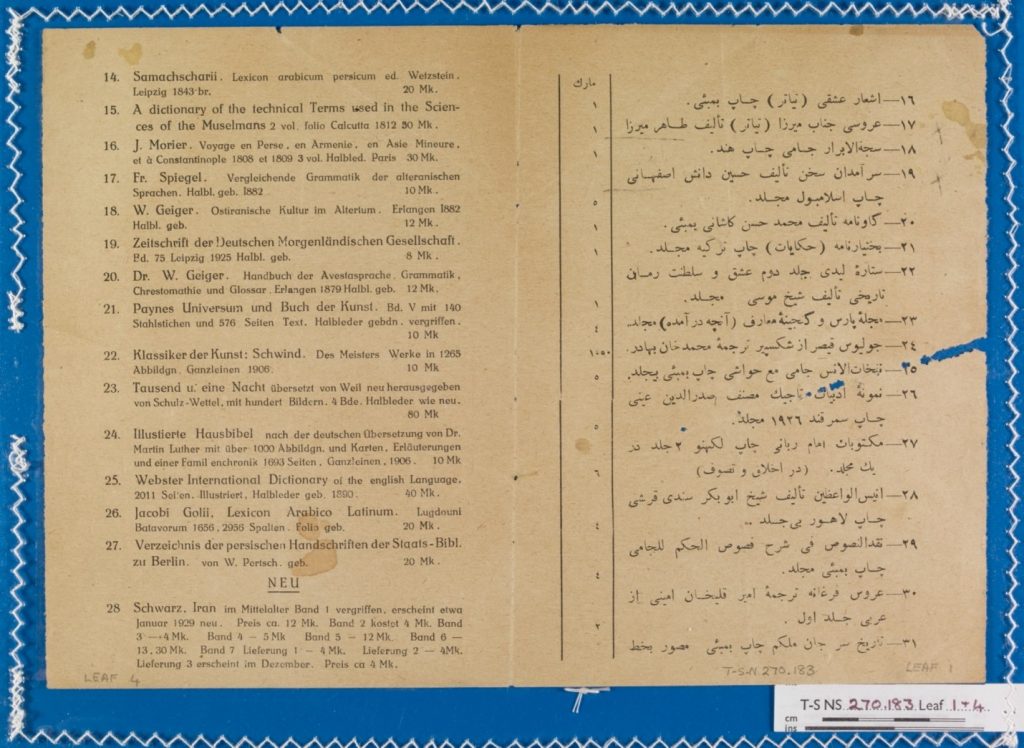 14. Samachscharii. Lexicon arabicum persicum ed. Wetzstein.
Leipzig 1843 br. 20 Mk.
15. A dictionary of the technical Terms used in the Scien-
ces of the Muselmans 2 vol. folio Calcutta 1812 30 Mk.
16. J. Morier. Voyage en Perse, en Armenie, en Asie Mineure,
et à Constantinople 1808 et 1809 3 vol. Halbled. Paris 30 Mk.
17. Fr. Spiegel. Vergleichende Grammatik der alteranischen
Sprachen. Halbl. geb. 1882 10 Mk.
18. W. Geiger. Ostiranische Kultur im Altertum. Erlangen 1882
Halbl. geb. 12 Mk.
19. Zeitschrift der Deutschen Morgenländischen Gesellschaft.
Bd. 75 Leipzig 1925 Halbl. geb. 8 Mk.
20. Dr. W. Geiger. Handbuch der Avestasprache, Grammatik,
Chrestomathie und Glossar. Erlangen 1879 Halbl. geb. 12 Mk.
21. Paynes Universum und Buch der Kunst. Bd. V mit 140
Stahlstichen und 576 Seiten Text. Halbleder gebdn. vergriffen.
10 Mk
22. Klassiker der Kunst: Schwind. Des Meisters Werke in 1265
Abbildgn. Ganzleinen 1906. 10 Mk
23. Tausend u. eine Nacht übersetzt von Weil neu herausgegeben
von Schulz-Wettel, mit hundert Bildern. 4 Bde. Halbleder wie neu.
80 Mk
24. Illustierte Hausbibel nach der deutschen Übersetzung von Dr.
Martin Luther mit über 1000 Abbildgn. und Karten, Erläuterungen
und einer Famil enchronik 1693 Seiten, Ganzleinen, 1906. 10 Mk
25. Webster International Dictionary of the english Language,
2011 Seiten. Illustriert, Halbleder geb. 1890. 40 Mk.
26. Jacobi Golii, Lexicon Arabico Latinum. Lugdouni
Batavorum 1656, 2956 Spalten. Folio geb. 20 Mk.
27. Verzeichnis der persischen Handschriften der Staats-Bibl.
zu Berlin. von W. Pertsch. geb. 20 Mk.
NEU
28 Schwarz, Iran im Mittelalter Band 1 vergriffen, erscheint etwa
Januar 1929 neu. Preis ca. 12 Mk. Band 2 kostet 4 Mk. Band
3 — 4 Mk. Band 4 — 5 Mk Band 5 — 12 Mk. Band 6 —
13.30 Mk. Band 7 Lieferung 1 — 4 Mk. Lieferung 2 — 4Mk.
Lieferung 3 erscheint im Dezember. Preis ca 4 Mk.
LEAF 4
مارك
١٦—اشعار عشقی (تیاتر) چاپ بمبئی. ١
١٧—عروسی جناب میرزا (تیاتر) تألیف طاهر میرزا ١
١٨—سبحةالابرار جامی چاپ هند. ١
١٩—سر آمدان سخن تألیف حسین دانش اصفهانی
چاپ اسلامبول مجلد. ٥
٢٠—گاونامه تألیف محمد حسن کاشانی بمبئی. ١
٢١—بختیارنامه (حکایات) چاپ ترکیه مجلد. ١
٢٢—ستارهٔ لیدی جلد دوم عشق و سلطنت رمان
تاریخی تألیف شیخ موسی مجلد. ١
٢٣—مجلهٔ پارس و گنجینهٔ معارف (آنچه در آمده) مجلد. ٤
٢٤—جولیوس قیصر از شکسپیر ترجمهٔ محمدخان بهادر. ١٠٥٠
٢٥—نفحات‌الانس جامی مع حواشی چاپ بمبئی بیجلد. ٥
٢٦—نمونهٔ ادبیات تاجیك مصنف صدرالدین عینی
چاپ سمرقند ١٩٢٦ مجلد. ٥
٢٧—مکتوبات امام ربانی چاپ لکهنو ٢ جلد در
یك مجلد. (در اخلاق و تصوف) ٦
٢٨—انیس‌الواعظین تألیف شیخ ابوبکر سندی قرشی
چاپ لاهور بی‌جلد .. ٤
٢٩—نقدالنصوص فی شرح فصوص الحکم للجامی
چاپ بمبئی مجلد. ٤
٣٠—عروس فرغانه ترجمهٔ امیر قلیخان امینی از
عربی جلد اول . ٢
٣١—تاریخ سر جان ملکم چاپ بمبئی مصور بخط
T-S-N. 270.183
LEAF 1
T-S NS 270.183 Leaf 1+4
cm
ins